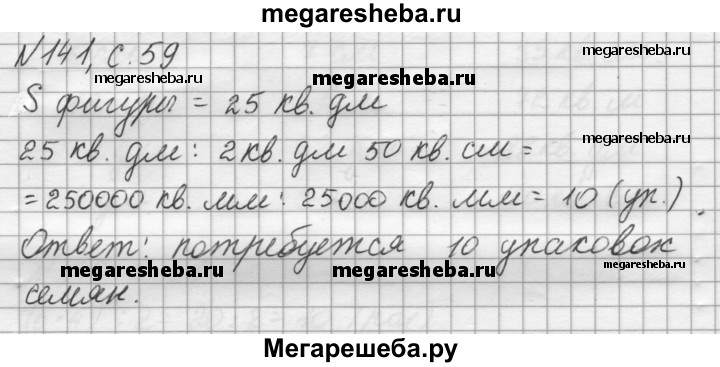 megaresheba.ru
N141, с. 59
megaresheba.ru
megaresheba.ru
megaresheba.ru
S фигуры = 25 кв. дм
25 кв. дм : 2 кв. дм 50 кв. см =
megaresheba.ru
= 250000 кв. мм : 25000 кв. мм = 10 (уп.).
Ответ: потребуется 10 упаковок
megaresheba.ru
megaresheba.ru
семян.
megaresheba.ru
Мегарешеба.ру